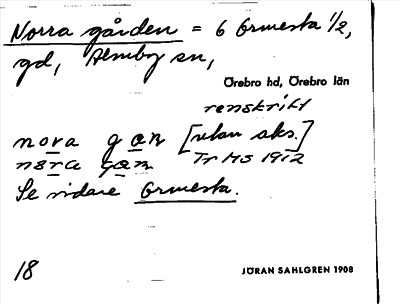 Norra gården = 6 Ormesta 1/2,
gd, Almby sn,
Örebro hd, Örebro län
renskrift
nora gan [utan aks.]
Tr HS 1912
Se vidare Ormesta.
18 JÖRAN SAHLGREN 1908